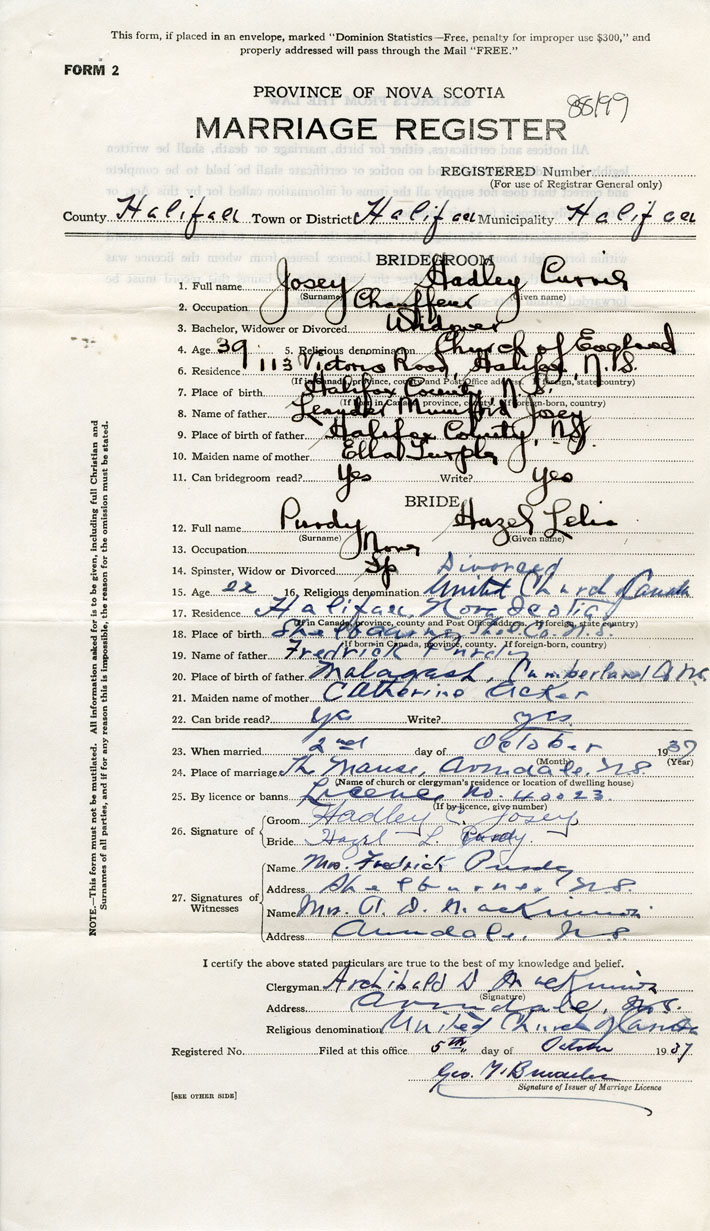 This form, if placed in an envelope, marked "Dominion Statistics—Free, penalty for improper use $300," and
properly addressed will pass through the Mail "FREE."
FORM 2
PROVINCE OF NOVA SCOTIA
88/99
MARRIAGE REGISTER
REGISTERED Number
(For use of Registrar General only)
County Halifax Town or District Halifax Municipality Halifax
BRIDEGROOM
1. Full name Josey Hadley
(Surname) (Given name)
2. Occupation Chauffeur
3. Bachelor, Widower or Divorced Widower
4. Age 39 5. Religious denomination Church of England
6. Residence 113 Victoria Road, Halifax, N.S.
(If in Canada, province, county and Post Office address. If foreign, state country)
7. Place of birth Halifax County, N.S.
(If born in Canada, province, county. If foreign-born, country)
8. Name of father Leander Josey
9. Place of birth of father Halifax County, NS
10. Maiden name of mother Ella
11. Can bridegroom read? Yes Write? Yes
BRIDE
12. Full name Purdy Hazel
(Surname) (Given name)
13. Occupation None
14. Spinster, Widow or Divorced Sp Divorced
15. Age 22 16. Religious denomination United Church of Canada
17. Residence Halifax, Nova Scotia
(If in Canada, province, county and Post Office address. If foreign, state country)
18. Place of birth Shelburne, Shel. Co. N.S.
(If born in Canada, province, county. If foreign-born, country)
19. Name of father Fredrick Purdy
20. Place of birth of father Malagash, Cumberland
21. Maiden name of mother Catherine Acker
22. Can bride read? yes Write? yes
23. When married 2nd day of October 1937
(Month) (Year)
24. Place of marriage The Manse, Avondale, N.S.
(Name of church or clergyman's residence or location of dwelling house)
25. By licence or banns Licence No. 40023
(If by licence, give number)
26. Signature of Groom Hadley C. Josey
Bride Hazel L. Purdy
27. Signatures of Witnesses
Name Mrs. Fredrick Purdy
Address Shelburne, N.S.
Name Mrs. A. D. MacKinnon
Address Avondale, N.S.
I certify the above stated particulars are true to the best of my knowledge and belief.
Clergyman Archibald D MacKinnon
(Signature)
Address Avondale, N.S.
Religious denomination United Church of Canada
Registered No. Filed at this office 5th day of October 1937
Geo.
Signature of Issuer of Marriage Licence
[SEE OTHER SIDE]
NOTE.—This form must not be mutilated. All information asked for is to be given, including full Christian and
Surnames of all parties, and if for any reason this is impossible, the reason for the omission must be stated.